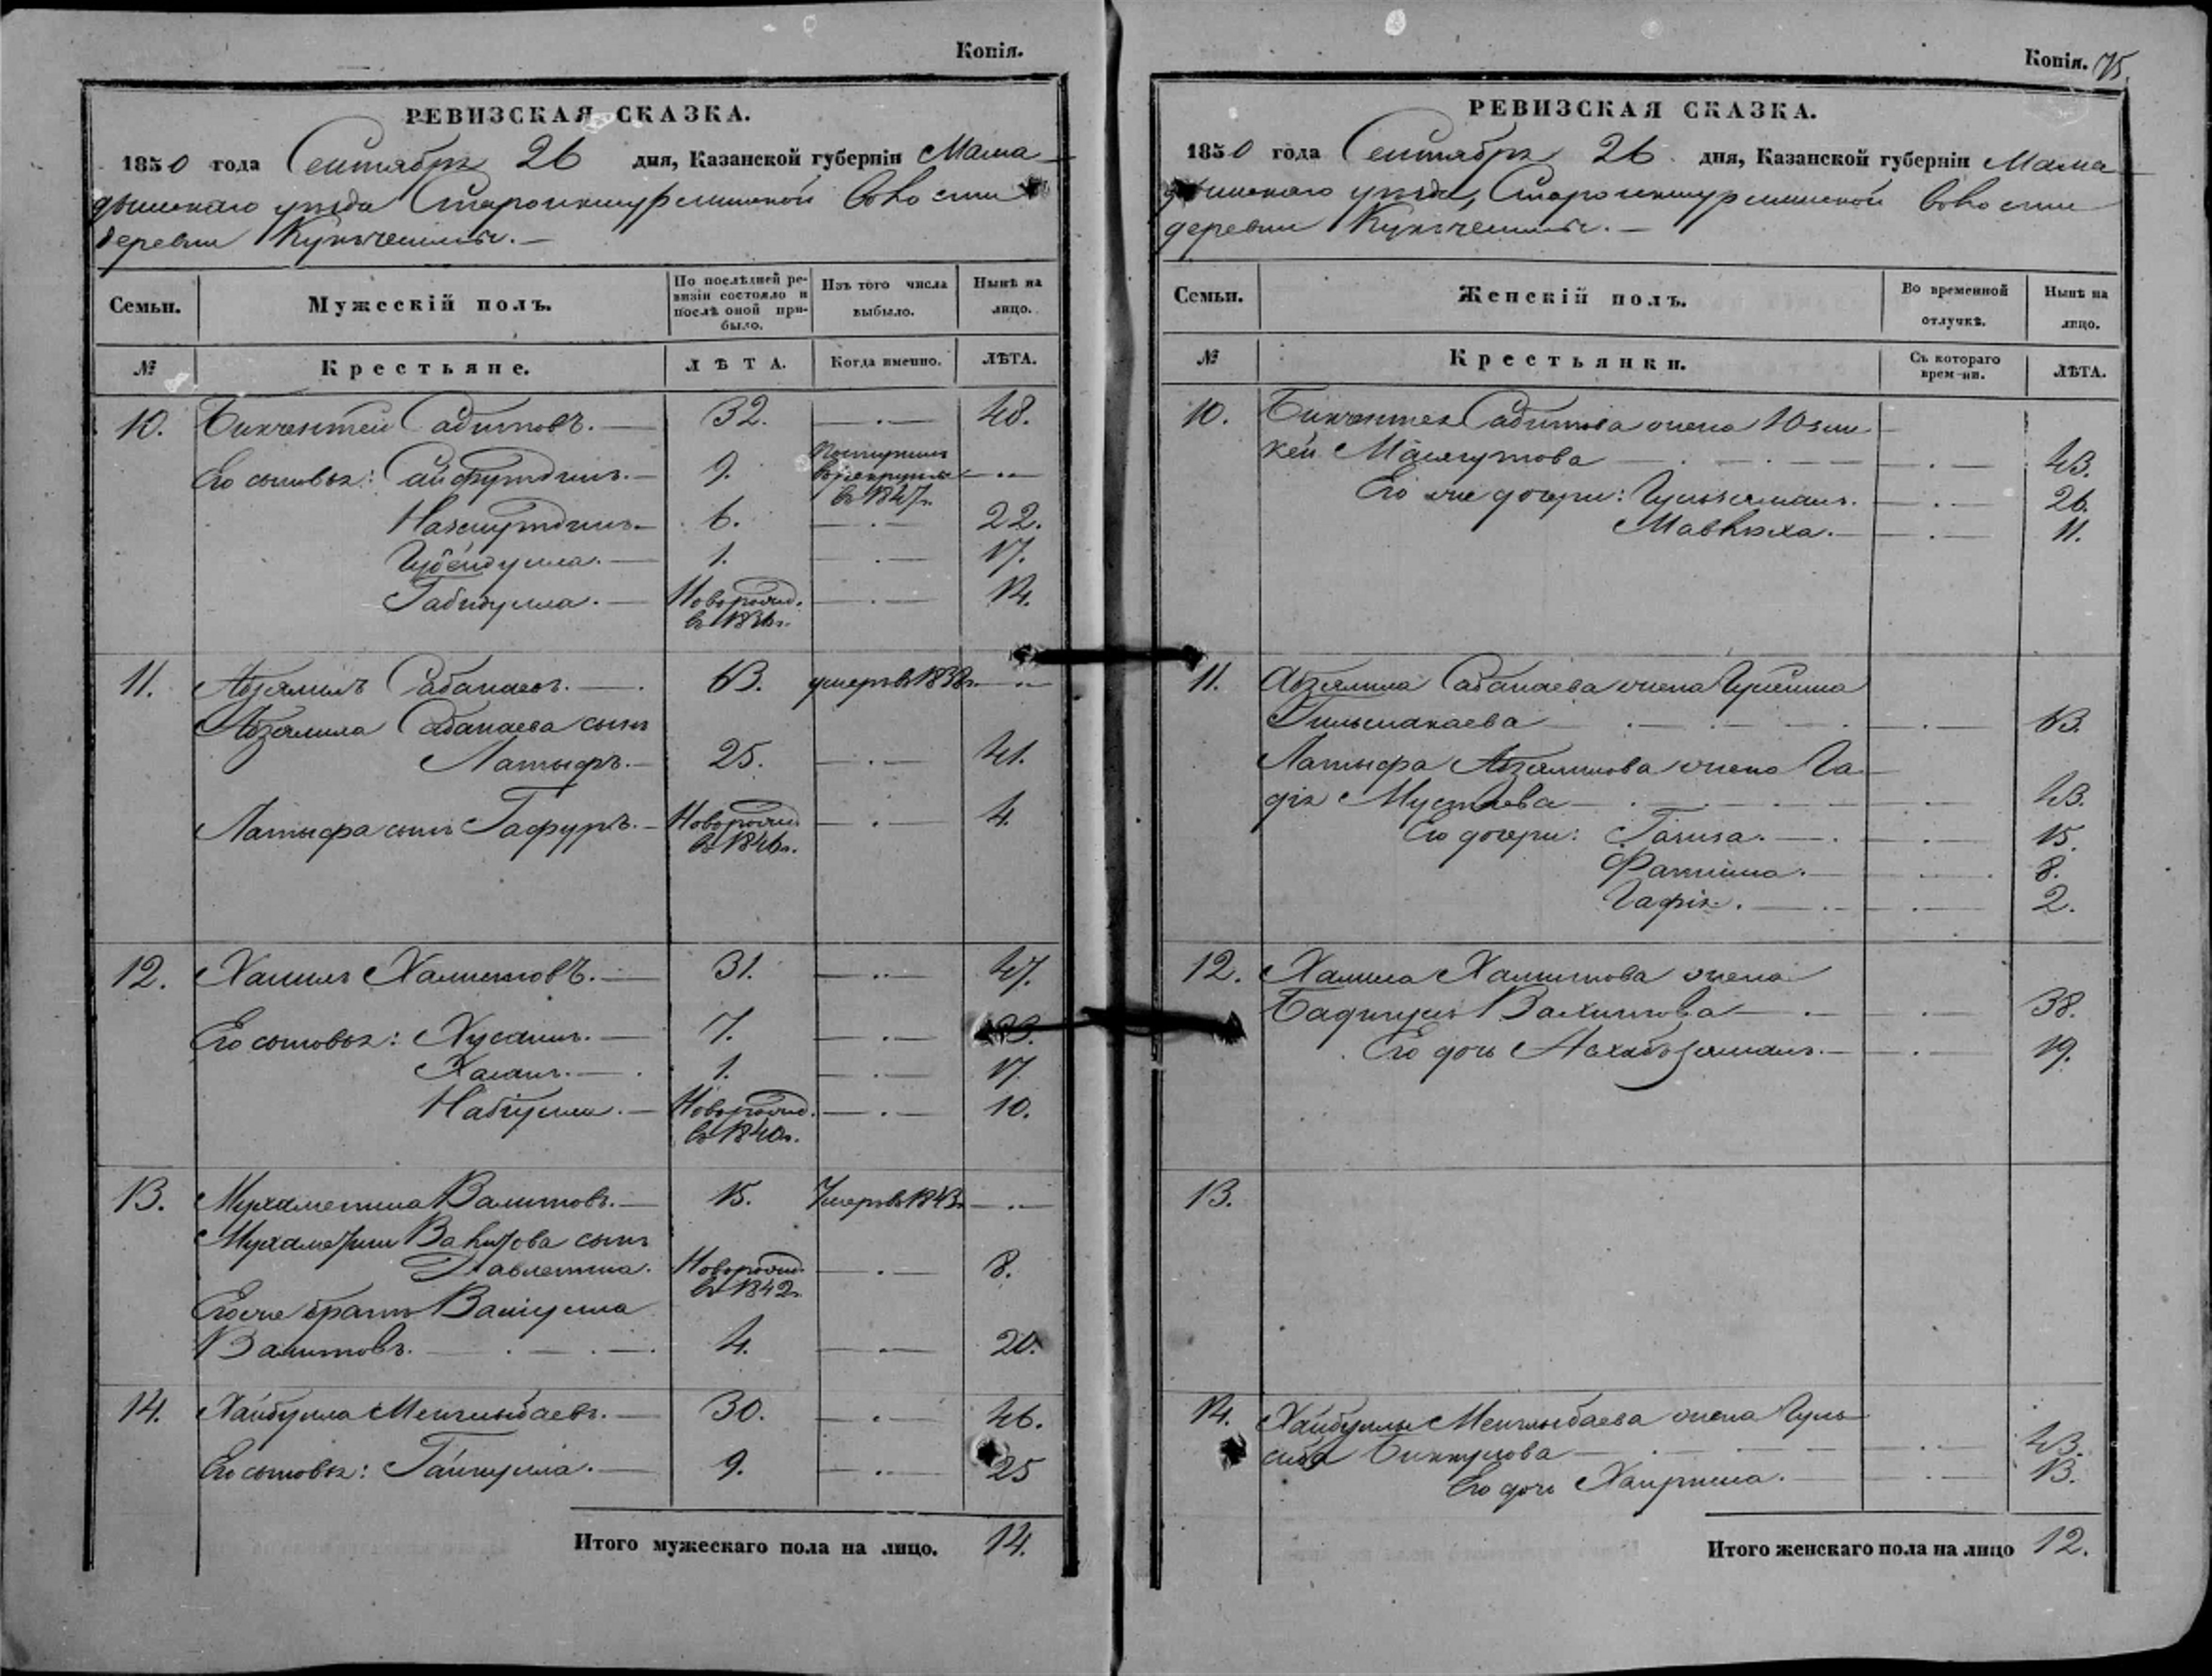 Копія.
РЕВИЗСКАЯ СКАЗКА.
1850 года Сентября 26 дня, Казанской губерніи Мама
дышскаго уѣзда Староикшурминской волости
деревни
Семьи.
Мужескій полъ.
По послѣдней ре-
визіи состояло и
послѣ оной при-
было.
Изъ того числа
выбыло.
Нынѣ на
лицо.
№
Крестьяне.
ЛѢТА.
Когда именно.
ЛѢТА.
10. Бикчентей Сабитовъ. 32. 48.
Его сыновья: Сайфутдинъ. 9. Поступилъ
въ рекруты
въ 1847г.
Назмутдинъ. 6. 22.
1. 17.
Габидулла. Новорожд. 14.
въ 1836г.
11. Абзялилъ Сабанаевъ. 63. умеръ въ 1838г.
Абзялила Сабанаева сынъ
Латыфъ. 25. 41.
Латыфа сынъ Гафуръ. Новорожд. 4.
въ 1846г.
12. Халилъ Халитовъ. 31. 47.
Его сыновья: Хусаинъ. 7. 23.
Хасанъ. 1. 17.
Набіулла. Новорожд. 10.
въ 1840г.
13. Мухаметша Валитовъ. 15. Умеръ въ 1843г.
Мухаметши Валитова сынъ
Давлетша. Новорожд. 8.
въ 1842г.
Его же братъ Валіулла
Валитовъ. 4. 20.
14. Хайбулла Менглыбаевъ. 30. 46.
Его сыновья: Гайнулла. 9. 25
Итого мужескаго пола на лицо. 14.
Копія. 75.
РЕВИЗСКАЯ СКАЗКА.
1850 года Сентября 26 дня, Казанской губерніи Мама
дышскаго уѣзда, Староикшурминской волости
деревни
Семьи.
Женскій полъ.
Во временной
отлучкѣ.
Нынѣ на
лицо.
№
Крестьянки.
Съ котораго
врем-ни.
ЛѢТА.
10. Бикчентея Сабитова жена Юзли
кей Масягутова 43.
Его же дочери: Гульземалъ. 26.
Мавлюха. 11.
11. Абзялила Сабанаева жена
Гильманаева 63.
Латыфа Абзялилова жена Га
фія Мустаева 43.
Его дочери: Газиза. 15.
Фатима. 8.
Гафія. 2.
12. Халила Халитова жена
Бадигулъ Валитова 38.
Его дочь 19.
13.
14. Хайбуллы Менглыбаева жена Гуль
Биккулова 43.
Его дочь 13.
Итого женскаго пола на лицо 12.